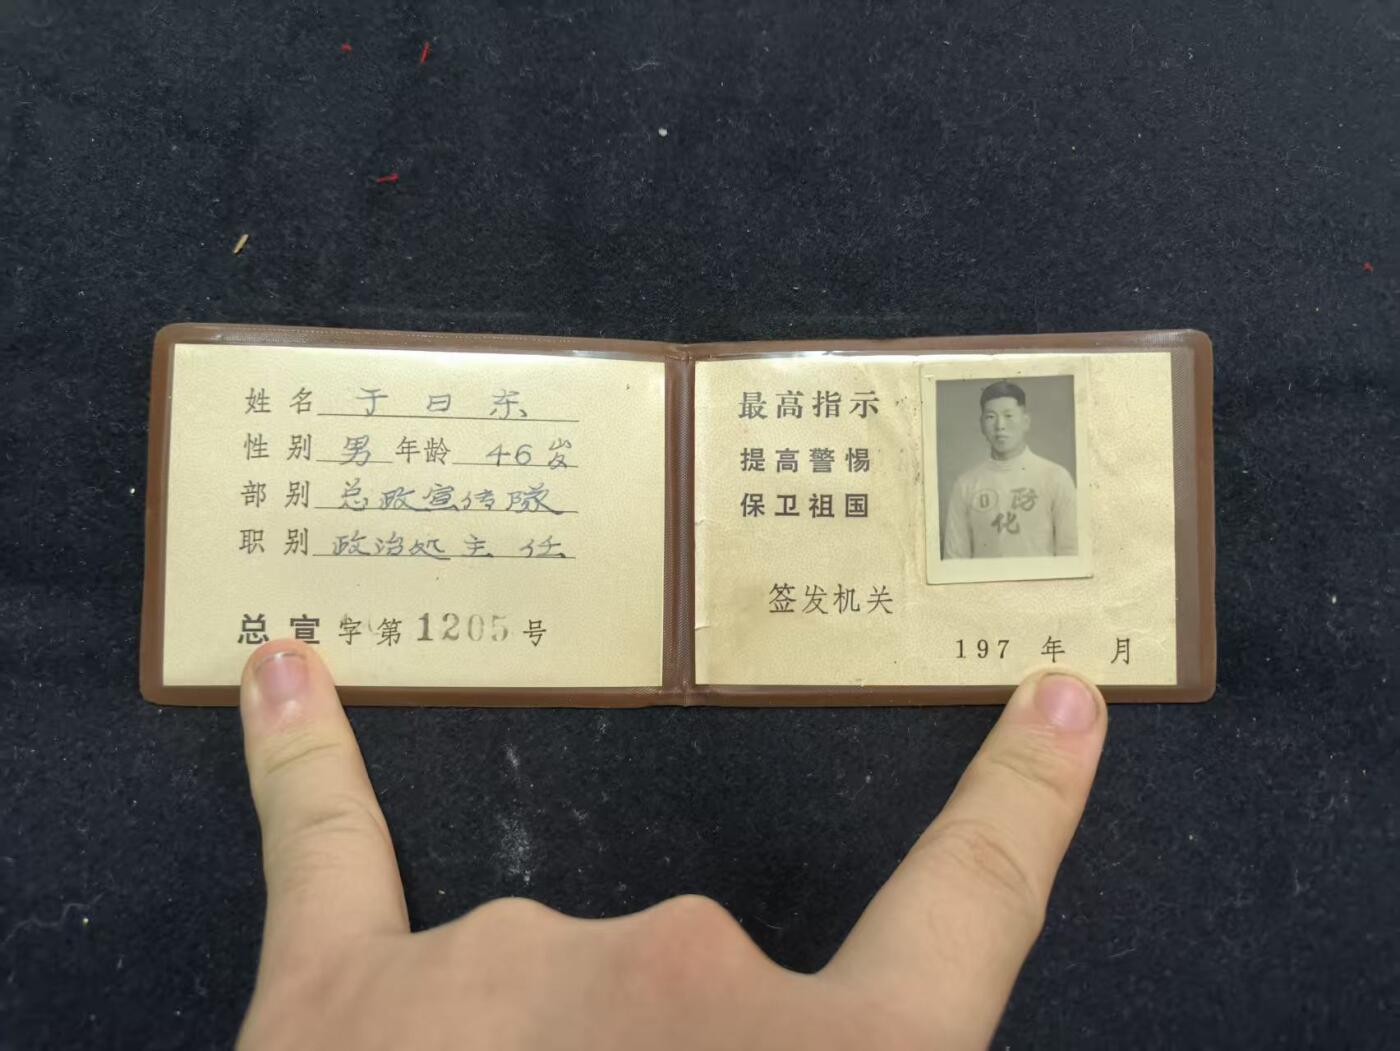 姓名 于日东
性别 男 年龄 46岁
部别 总政宣传隊
职别 政治处主任
总宣字第1205号
最高指示
提高警惕
保卫祖国
防
化
签发机关
197 年 月